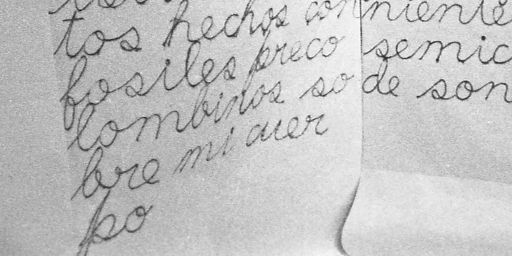 tos hechos con
fosiles preco
lombinos so
bre mi cuer
po
niente
semic
de son